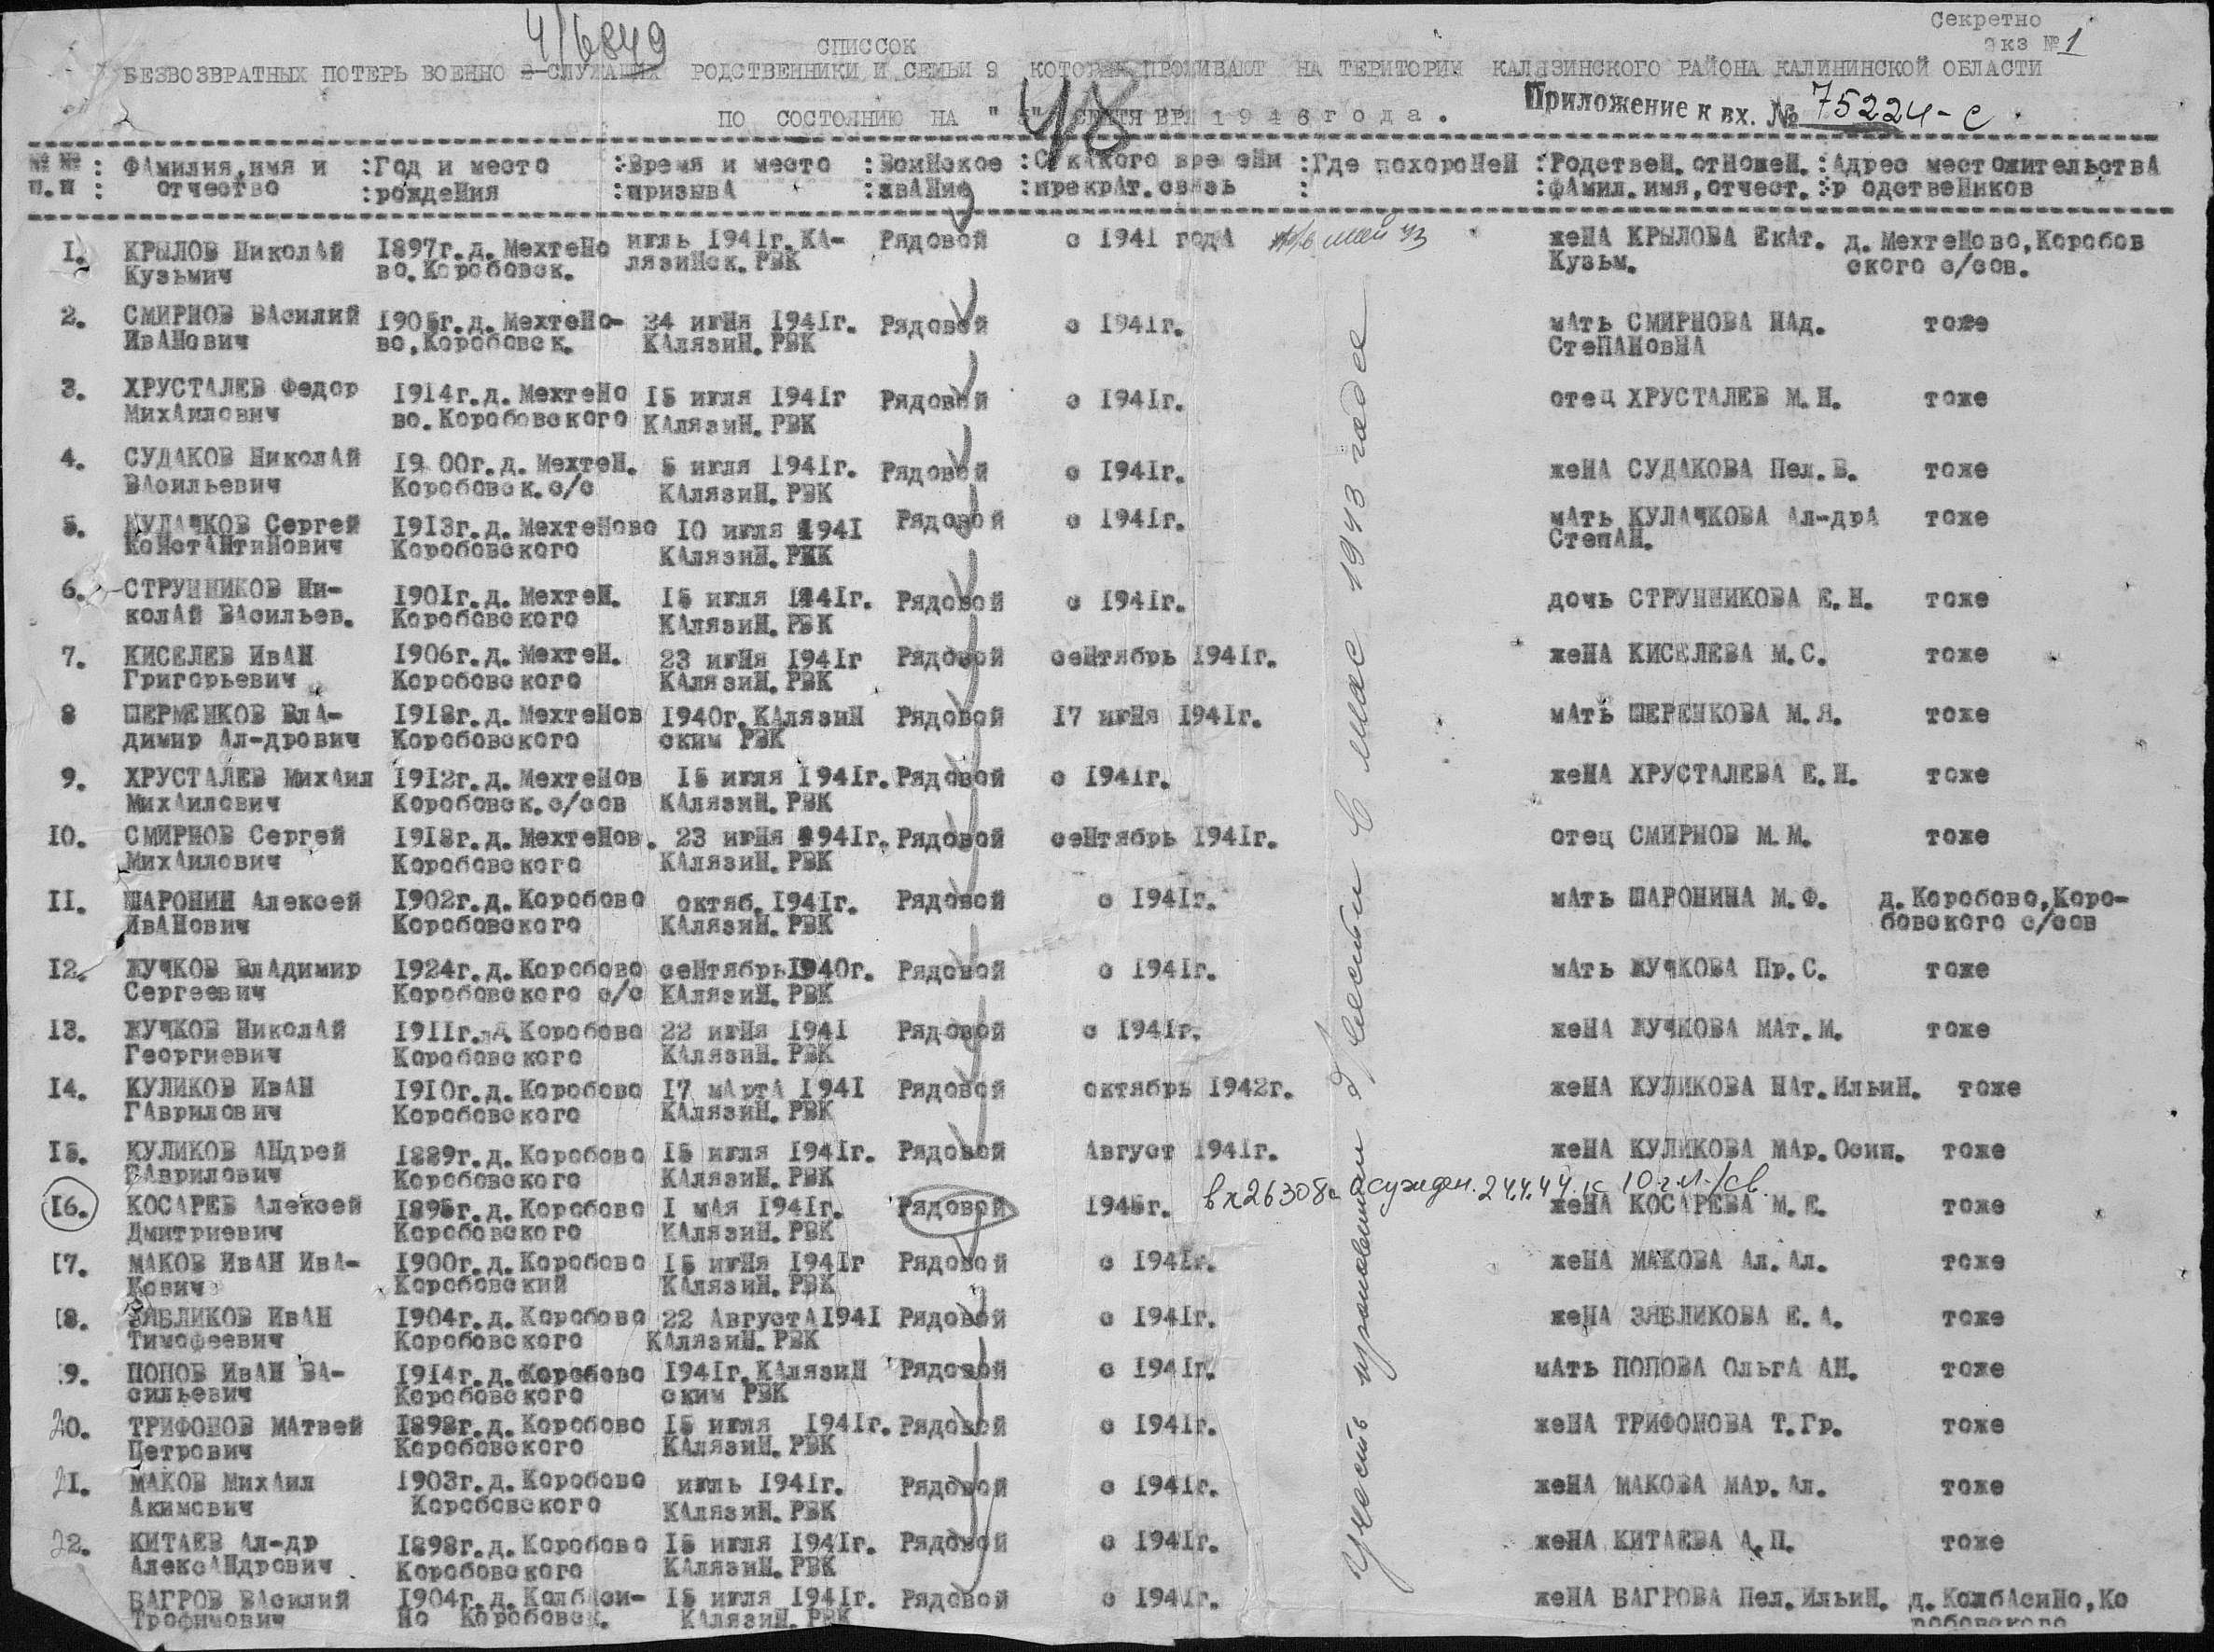 Секретно
экз № 1
4/6849
СПИССОК
БЕЗВОЗВРАТНЫХ ПОТЕРЬ ВОЕННО СЛУЖАЩИХ РОДСТВЕННИКИ И СЕМЬИ КОТОРЫХ ПРОЖИВАЮТ НА ТЕРИТОРИИ КАЛЯЗИНСКОГО РАЙОНА КАЛИНИНСКОЙ ОБЛАСТИ
ПО СОСТОЯНИЮ НА " " СЕНТЯБРЯ 1946 года.
48
Приложение к вх. № 75224-с
№ № п.п : Фамилия, имя и отчество : Год и место рождения : Время и место призыва : Воинское звание : С какого времени прекрат. связь : Где похоронен : Родствен. отношен. фамил. имя, отчест. : Адрес местожительства родственников
1. КРЫЛОВ Николай 1897г. д. Мехтено июль 1941г. КА- Рядовой с 1941 года жена КРЫЛОВА Екат. д. Мехтеново, Коробов
Кузьмич во. Коробовск. лязинск. РВК Кузьм. ского с/сов.
2. СМИРНОВ Василий 1905г. д. Мехтено- 24 июня 1941г. Рядовой с 1941г. мать СМИРНОВА Над. тоже
Иванович во, Коробовск. Калязин. РВК Степановна
3. ХРУСТАЛЕВ Федор 1914г. д. Мехтено 15 июля 1941г Рядовой с 1941г. отец ХРУСТАЛЕВ М.Н. тоже
Михаилович во. Коробовского Калязин. РВК
4. СУДАКОВ Николай 1900г. д. Мехтен. 5 июля 1941г. Рядовой с 1941г. жена СУДАКОВА Пел. В. тоже
Васильевич Коробовск. с/с Калязин. РВК
5. КУЛАЧКОВ Сергей 1913г. д. Мехтеново 10 июля 1941 Рядовой с 1941г. мать КУЛАЧКОВА Ал-дра тоже
Константинович Коробовского Калязин. РВК Степан.
6. СТРУННИКОВ Ни- 1901г. д. Мехтен. 15 июля 1941г. Рядовой с 1941г. дочь СТРУННИКОВА Е.Н. тоже
колай Васильев. Коробовского Калязин. РВК
7. КИСЕЛЕВ Иван 1906г. д. Мехтен. 23 июня 1941г Рядовой сентябрь 1941г. жена КИСЕЛЕВА М.С. тоже
Григорьевич Коробовского Калязин. РВК
8 ШЕРМЕНКОВ Вла- 1918г. д. Мехтенов 1940г. Калязин Рядовой 17 июня 1941г. мать ШЕРЕНКОВА М.Я. тоже
димир Ал-дрович Коробовского ским РВК
9. ХРУСТАЛЕВ Михаил 1912г. д. Мехтенов 15 июля 1941г. Рядовой с 1941г. жена ХРУСТАЛЕВА Е.Н. тоже
Михаилович Коробовск. с/сов Калязин. РВК
10. СМИРНОВ Сергей 1918г. д. Мехтенов. 23 июня 1941г. Рядовой сентябрь 1941г. отец СМИРНОВ М.М. тоже
Михаилович Коробовского Калязин. РВК
11. ШАРОНИН Алексей 1902г. д. Коробово октяб. 1941г. Рядовой с 1941г. мать ШАРОНИНА М.Ф. д. Коробово, Коро-
Иванович Коробовского Калязин. РВК бовского с/сов
12. ЖУЧКОВ Владимир 1924г. д. Коробово сентябрь 1940г. Рядовой с 1941г. мать ЖУЧКОВА Пр. С. тоже
Сергеевич Коробовского с/с Калязин. РВК
13. ЖУЧКОВ Николай 1911г. д. Коробово 22 июня 1941 Рядовой с 1941г. жена ЖУЧКОВА Мат. М. тоже
Георгиевич Коробовского Калязин. РВК
14. КУЛИКОВ Иван 1910г. д. Коробово 17 марта 1941 Рядовой октябрь 1942г. жена КУЛИКОВА Нат. Ильин. тоже
Гаврилович Коробовского Калязин. РВК
15. КУЛИКОВ Андрей 1889г. д. Коробово 15 июля 1941г. Рядовой Август 1941г. жена КУЛИКОВА Мар. Осип. тоже
Гаврилович Коробовского Калязин. РВК
вх 26308с осужден. 24.4.44 к 10 г. л/св.
16. КОСАРЕВ Алексей 1895г. д. Коробово 1 мая 1941г. Рядовой 1945г. жена КОСАРЕВА М.Е. тоже
Дмитриевич Коробовского Калязин. РВК
17. МАКОВ Иван Ива- 1900г. д. Коробово 15 июня 1941г Рядовой с 1941г. жена МАКОВА Ал. Ал. тоже
нович Коробовский Калязин. РВК
18. ЗЯБЛИКОВ Иван 1904г. д. Коробово 22 Августа 1941 Рядовой с 1941г. жена ЗЯБЛИКОВА Е.А. тоже
Тимофеевич Коробовского Калязин. РВК
19. ПОПОВ Иван Ва- 1914г. д. Коробово 1941г. Калязин Рядовой с 1941г. мать ПОПОВА Ольга Ан. тоже
сильевич Коробовского ским РВК
20. ТРИФОНОВ Матвей 1898г. д. Коробово 15 июля 1941г. Рядовой с 1941г. жена ТРИФОНОВА Т. Гр. тоже
Петрович Коробовского Калязин. РВК
21. МАКОВ Михаил 1903г. д. Коробово июль 1941г. Рядовой с 1941г. жена МАКОВА Мар. Ал. тоже
Акимович Коробовского Калязин. РВК
22. КИТАЕВ Ал-др 1898г. д. Коробово 15 июля 1941г. Рядовой с 1941г. жена КИТАЕВА А.П. тоже
Александрович Коробовского Калязин. РВК
БАГРОВ Василий 1904г. д. Колбаси- 15 июля 1941г. Рядовой с 1941г. жена БАГРОВА Пел. Ильин. д. Колбасино, Ко
Трофимович но Коробовск. Калязин. РВК робовского
Учесть пропавшими без вести в мае 1943 года